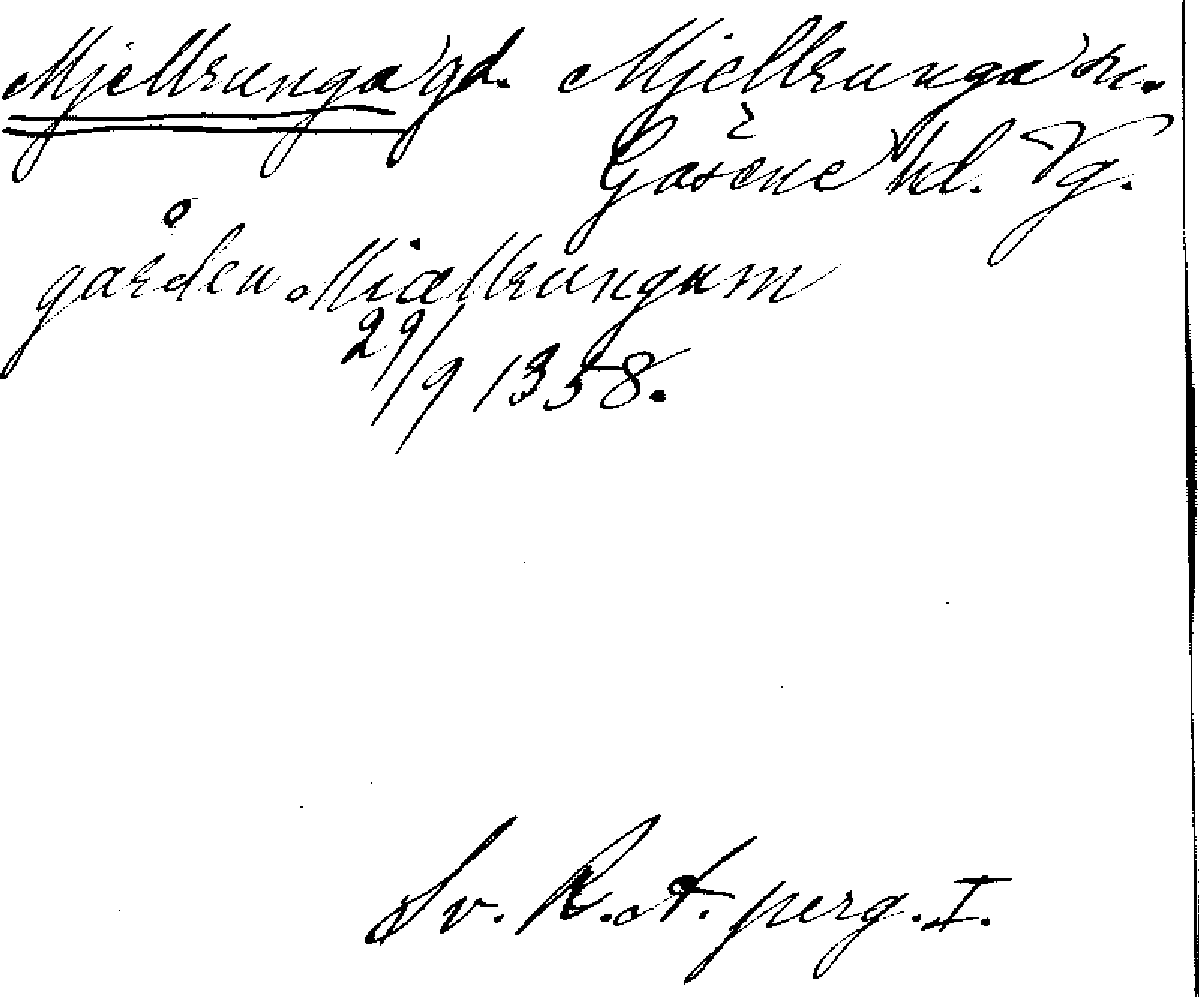 Mjeldrunga gd. Mjeldrunga sn.
Gäsene hd. Vg.
gården Miældrungum
29/9 1358.
Sv. R. A. perg. I.